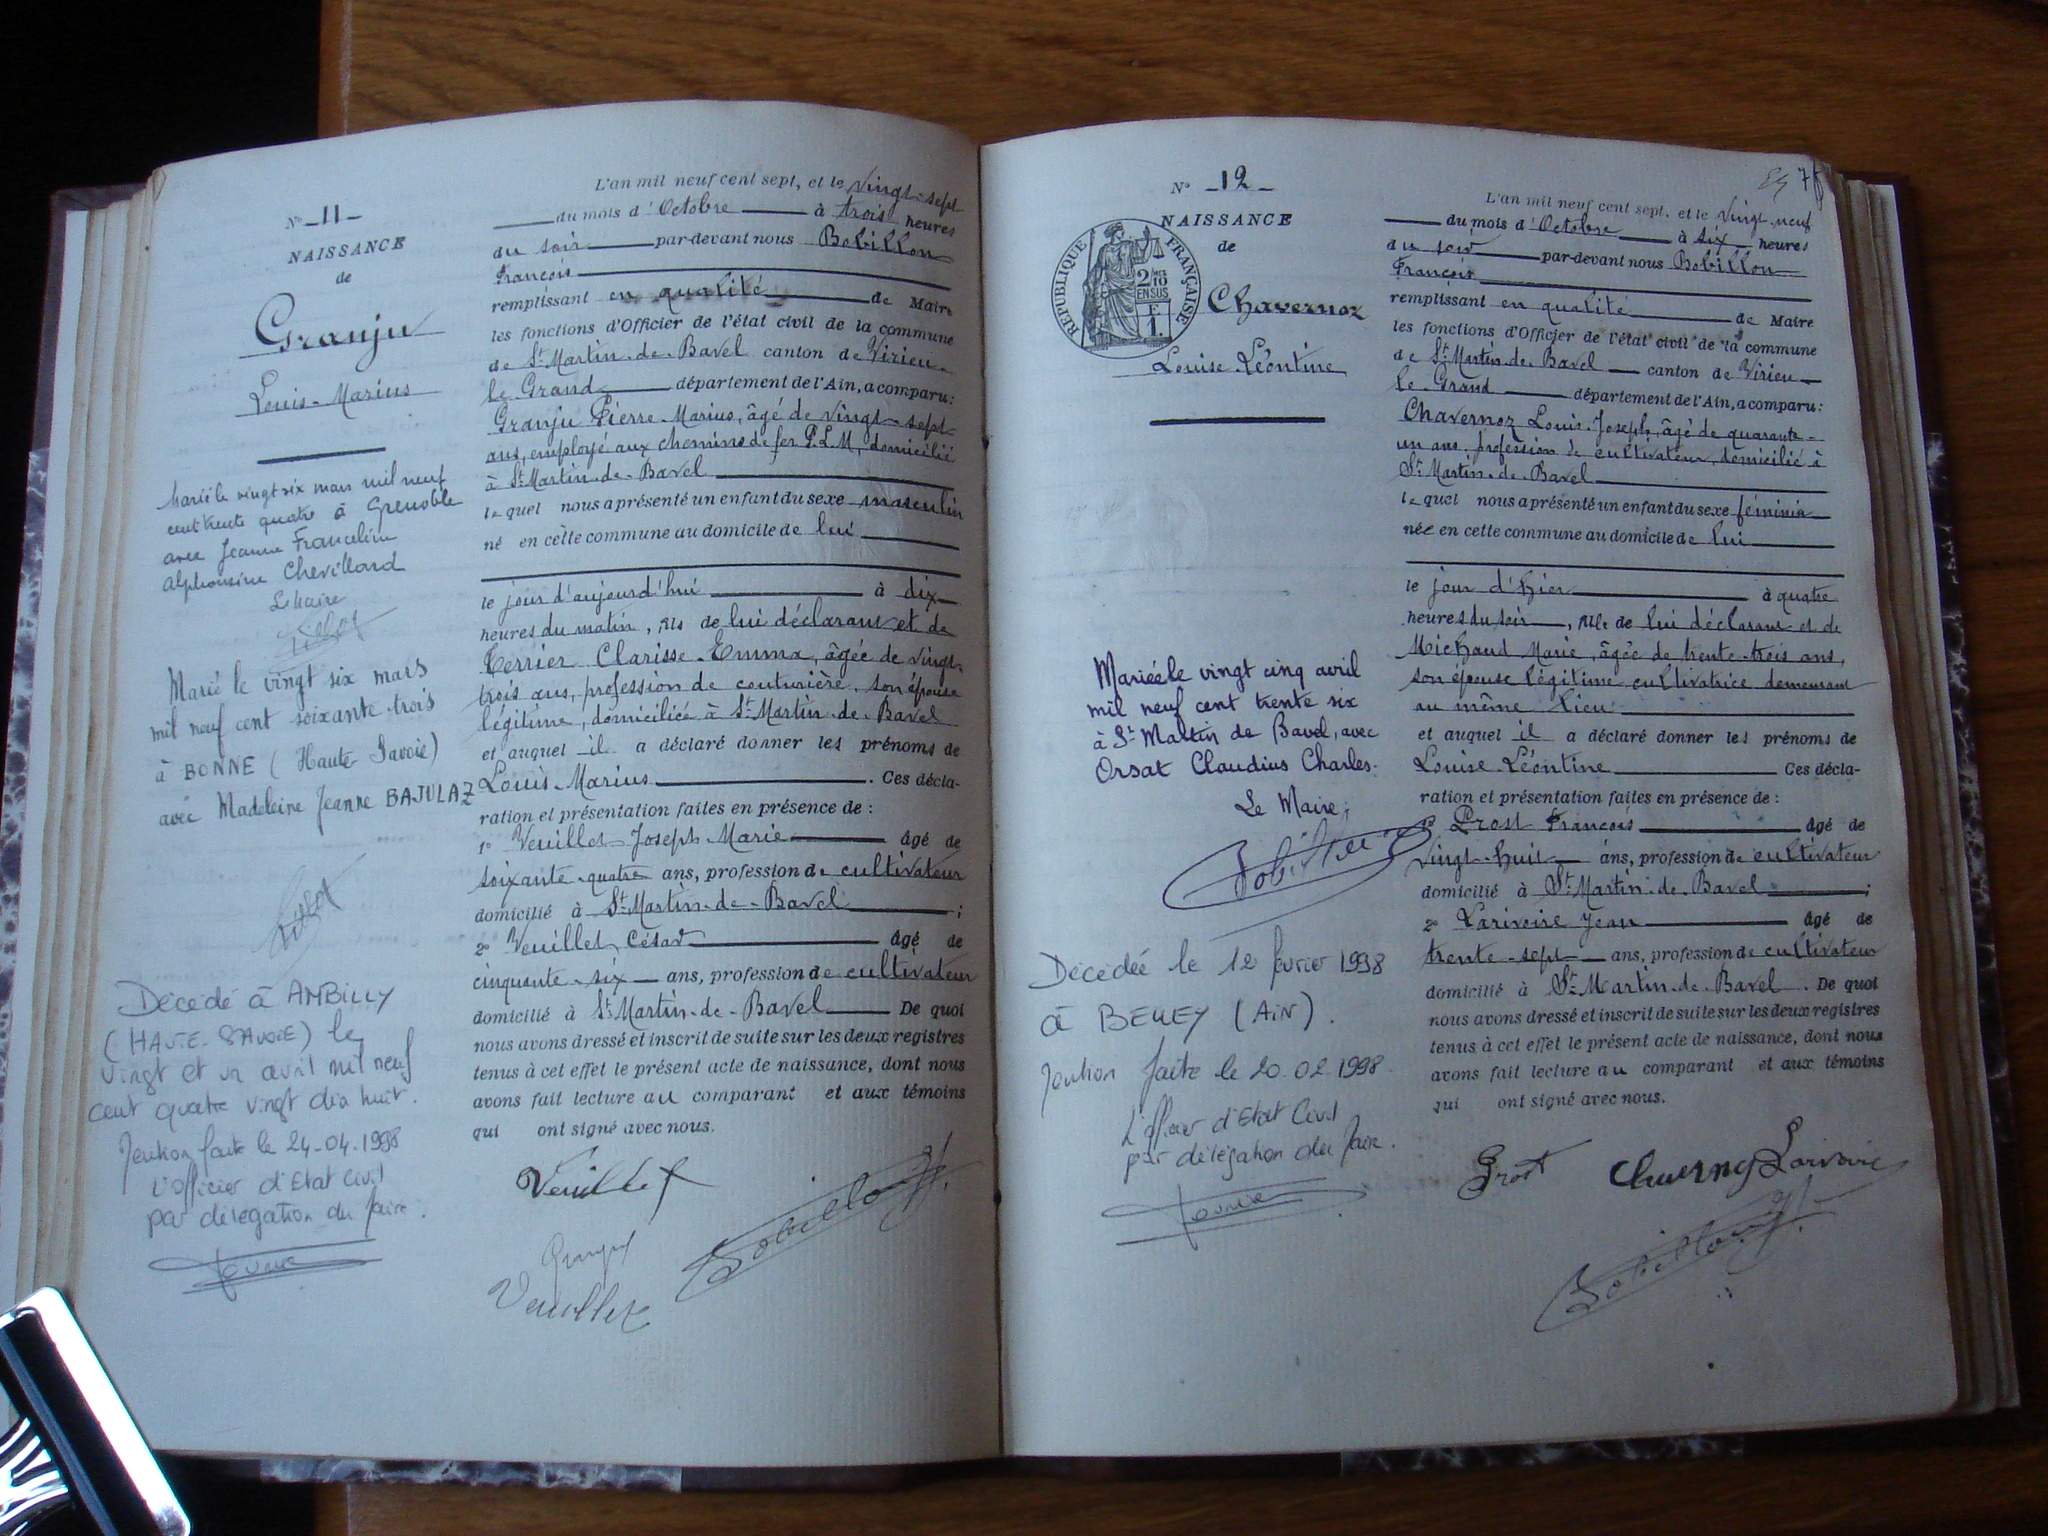 N° 11
NAISSANCE
de
Granju
Louis-Marius
Marié le vingt six mars mil neuf
cent trente quatre à Grenoble
avec Jeanne Franceline
Alphonsine Chevillard
Le Maire
Marié le vingt six mars
mil neuf cent soixante trois
à BONNE (Haute Savoie)
avec Madeleine Jeanne BAJULAZ
Décédé à AMBILLY
(HAUTE-SAVOIE) le
vingt et un avril mil neuf
cent quatre vingt dix huit.
faite le 24-04-1998
L'officier d'Etat Civil
par délégation du Maire.
L'an mil neuf cent sept, et le vingt-sept
du mois d'Octobre à trois heures
du soir par-devant nous Bobillon
François
remplissant en qualité de Maire
les fonctions d'Officier de l'état civil de la commune
de St Martin-de-Bavel canton de Virieu-
le Grand département de l'Ain, a comparu:
Granju Pierre-Marius, âgé de vingt-sept
ans, employé aux chemins de fer P.L.M, domicilié
à St Martin-de-Bavel
lequel nous a présenté un enfant du sexe masculin
né en cette commune au domicile de lui
le jour d'aujourd'hui à dix
heures du matin, fils de lui déclarant et de
Terrier Clarisse-Emma, âgée de vingt-
trois ans, profession de couturière, son épouse
légitime, domiciliée à St Martin-de-Bavel
et auquel il a déclaré donner les prénoms de
Louis-Marius. Ces décla-
ration et présentation faites en présence de :
1° Veuillet Joseph-Marie âgé de
soixante-quatre ans, profession de cultivateur
domicilié à St Martin-de-Bavel ;
2° Veuillet César âgé de
cinquante-six ans, profession de cultivateur
domicilié à St Martin-de-Bavel De quoi
nous avons dressé et inscrit de suite sur les deux registres
tenus à cet effet le présent acte de naissance, dont nous
avons fait lecture au comparant et aux témoins
qui ont signé avec nous.
Veuillet
Bobillon
Granju
Veuillet
N° 12
NAISSANCE
de
RÉPUBLIQUE FRANÇAISE
2/10
EN SUS
E
1.
Chavernoz
Louise Léontine
Mariée le vingt cinq avril
mil neuf cent trente six
à St Martin de Bavel, avec
Orsat Claudius Charles.
Le Maire,
Décédée le 12 février 1998
à BELLEY (AIN).
faite le 20.02.1998
L'officier d'Etat Civil
par délégation du Maire.
L'an mil neuf cent sept, et le vingt-neuf
du mois d'Octobre à six heures
du soir par-devant nous Bobillon
François
remplissant en qualité de Maire
les fonctions d'Officier de l'état civil de la commune
de St Martin-de-Bavel canton de Virieu-
le Grand département de l'Ain, a comparu:
Chavernoz Louis-Joseph, âgé de quarante-
un ans, profession de cultivateur, domicilié à
St Martin-de-Bavel
lequel nous a présenté un enfant du sexe féminin
née en cette commune au domicile de lui
le jour d'hier à quatre
heures du soir, fille de lui déclarant et de
Michaud Marie, âgée de trente-trois ans,
son épouse légitime cultivatrice demeurant
au même lieu
et auquel il a déclaré donner les prénoms de
Louise-Léontine Ces décla-
ration et présentation faites en présence de :
1° Prost François âgé de
vingt-huit ans, profession de cultivateur
domicilié à St Martin-de-Bavel ;
2° Larivoire Jean âgé de
trente-sept ans, profession de cultivateur
domicilié à St Martin-de-Bavel. De quoi
nous avons dressé et inscrit de suite sur les deux registres
tenus à cet effet le présent acte de naissance, dont nous
avons fait lecture au comparant et aux témoins
qui ont signé avec nous.
Prost Chavernoz Larivoire
Bobillon